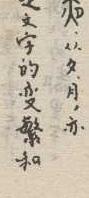 从夕、月，亦
文字的变繁和